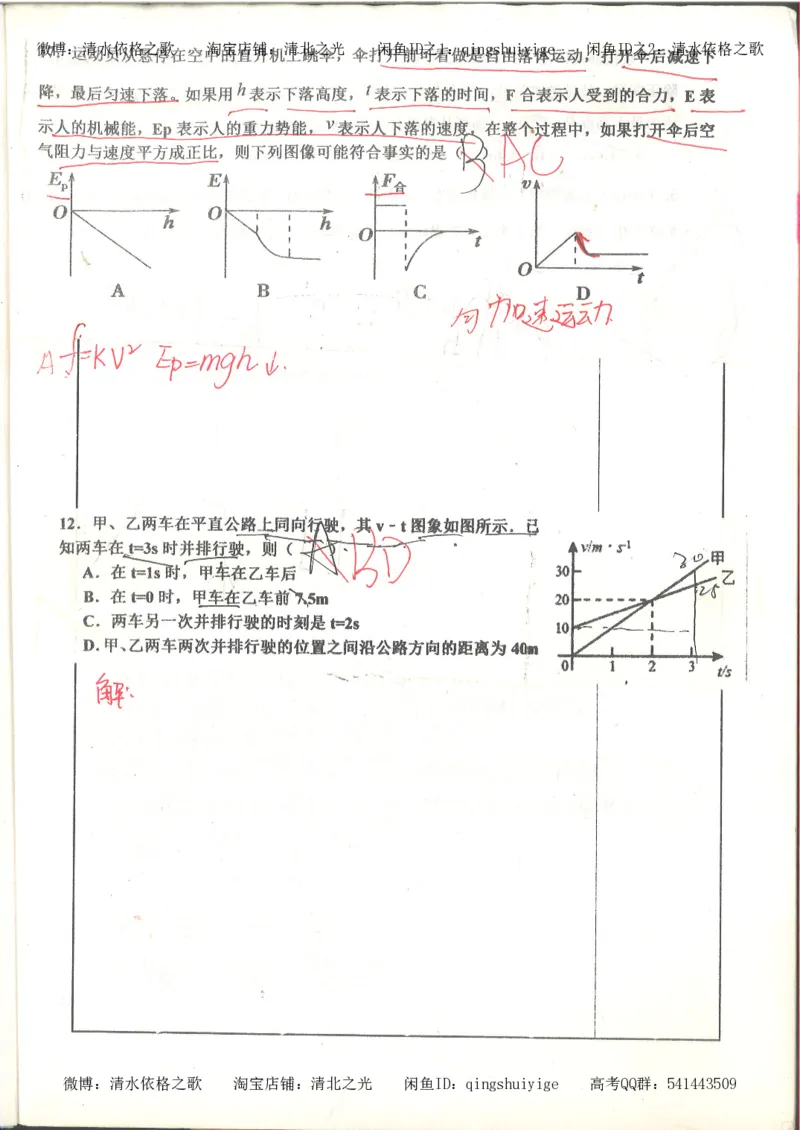 微博：清水依格之歌 淘宝店铺：清北之光 闲鱼ID之1：qingshuiyige 闲鱼ID之2：清水依格之歌
运动员从悬停在空中的直升机上跳伞，伞打开前可看做是自由落体运动，打开伞后减速下
降，最后匀速下落。如果用h表示下落高度，t表示下落的时间，F合表示人受到的合力，E表
示人的机械能，Ep表示人的重力势能，v表示人下落的速度，在整个过程中，如果打开伞后空
气阻力与速度平方成正比，则下列图像可能符合事实的是（B） AC
Ep O h E O h F合 O t v O t
A B C D
匀加速运动
A f=KV² Ep=mgh↓.
12．甲、乙两车在平直公路上同向行驶，其 v－t 图象如图所示．已
知两车在 t=3s 时并排行驶，则（A）． ABD
A．在 t=1s 时，甲车在乙车后
B．在 t=0 时，甲车在乙车前 7.5m
C．两车另一次并排行驶的时刻是 t=2s
D．甲、乙两车两次并排行驶的位置之间沿公路方向的距离为 40m
v/m·s⁻¹ 30 甲
30 乙
20 25
10
0 1 2 3 t/s
解:
微博：清水依格之歌 淘宝店铺：清北之光 闲鱼ID：qingshuiyige 高考QQ群：541443509